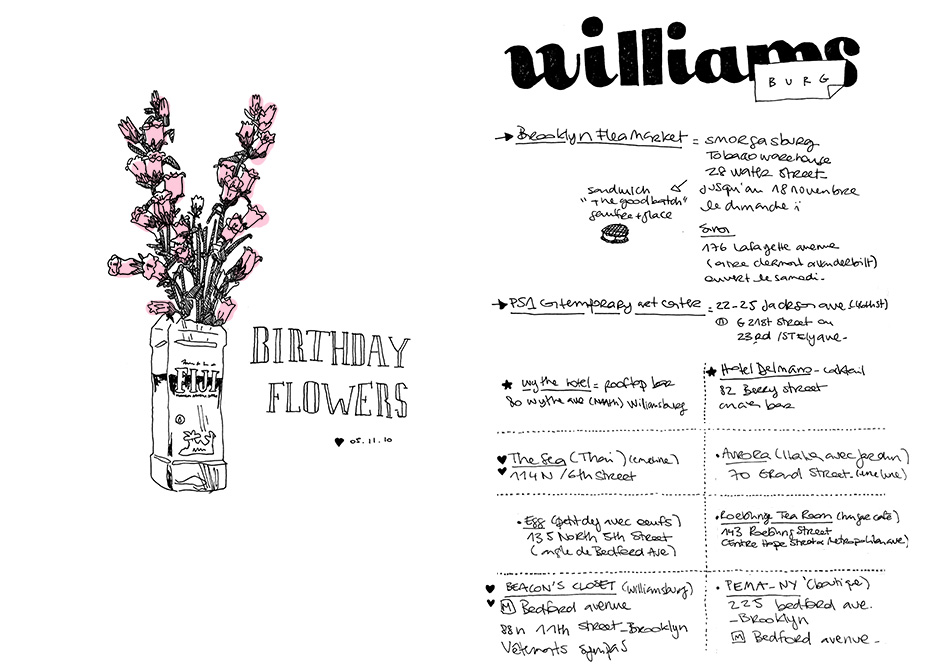 FIJI
BIRTHDAY
FLOWERS
♥ 05.11.10
williams
BURG
→ Brooklyn Flea Market = smorgasburg
Tobacco warehouse
28 water street
jusqu'au 18 novembre
le dimanche
sandwich
"The good batch"
gaufre + glace
Sinon
176 Lafayette avenue
(entre clermont & vanderbilt)
ouvert le samedi.
→ PS1 Contemporary art center = 22-25 Jackson ave
G 21st Street ou
23rd / ST Ely ave.
★ wythe hotel = rooftop bar
80 wythe ave (North) Williamsburg
★ Hotel Delmano - cocktail
82 Berry street
ancien bar
♥ The Sea (Thai) (emeline)
♥ 114 N / 6th Street
• Aurora (Italien avec jardin)
70 Grand Street. (emeline)
• Egg (petit dej avec oeufs)
135 North 5th Street
(angle de Bedford Ave)
• Roebling Tea Room (café)
143 Roebling Street
(Entre Hope Street & Metropolitan ave)
♥ BEACON'S CLOSET (Williamsburg)
♥ M Bedford avenue
88 n 11th street_Brooklyn
Vêtements sympas
• PEMA-NY (boutique)
225 bedford ave.
_Brooklyn
M Bedford avenue -